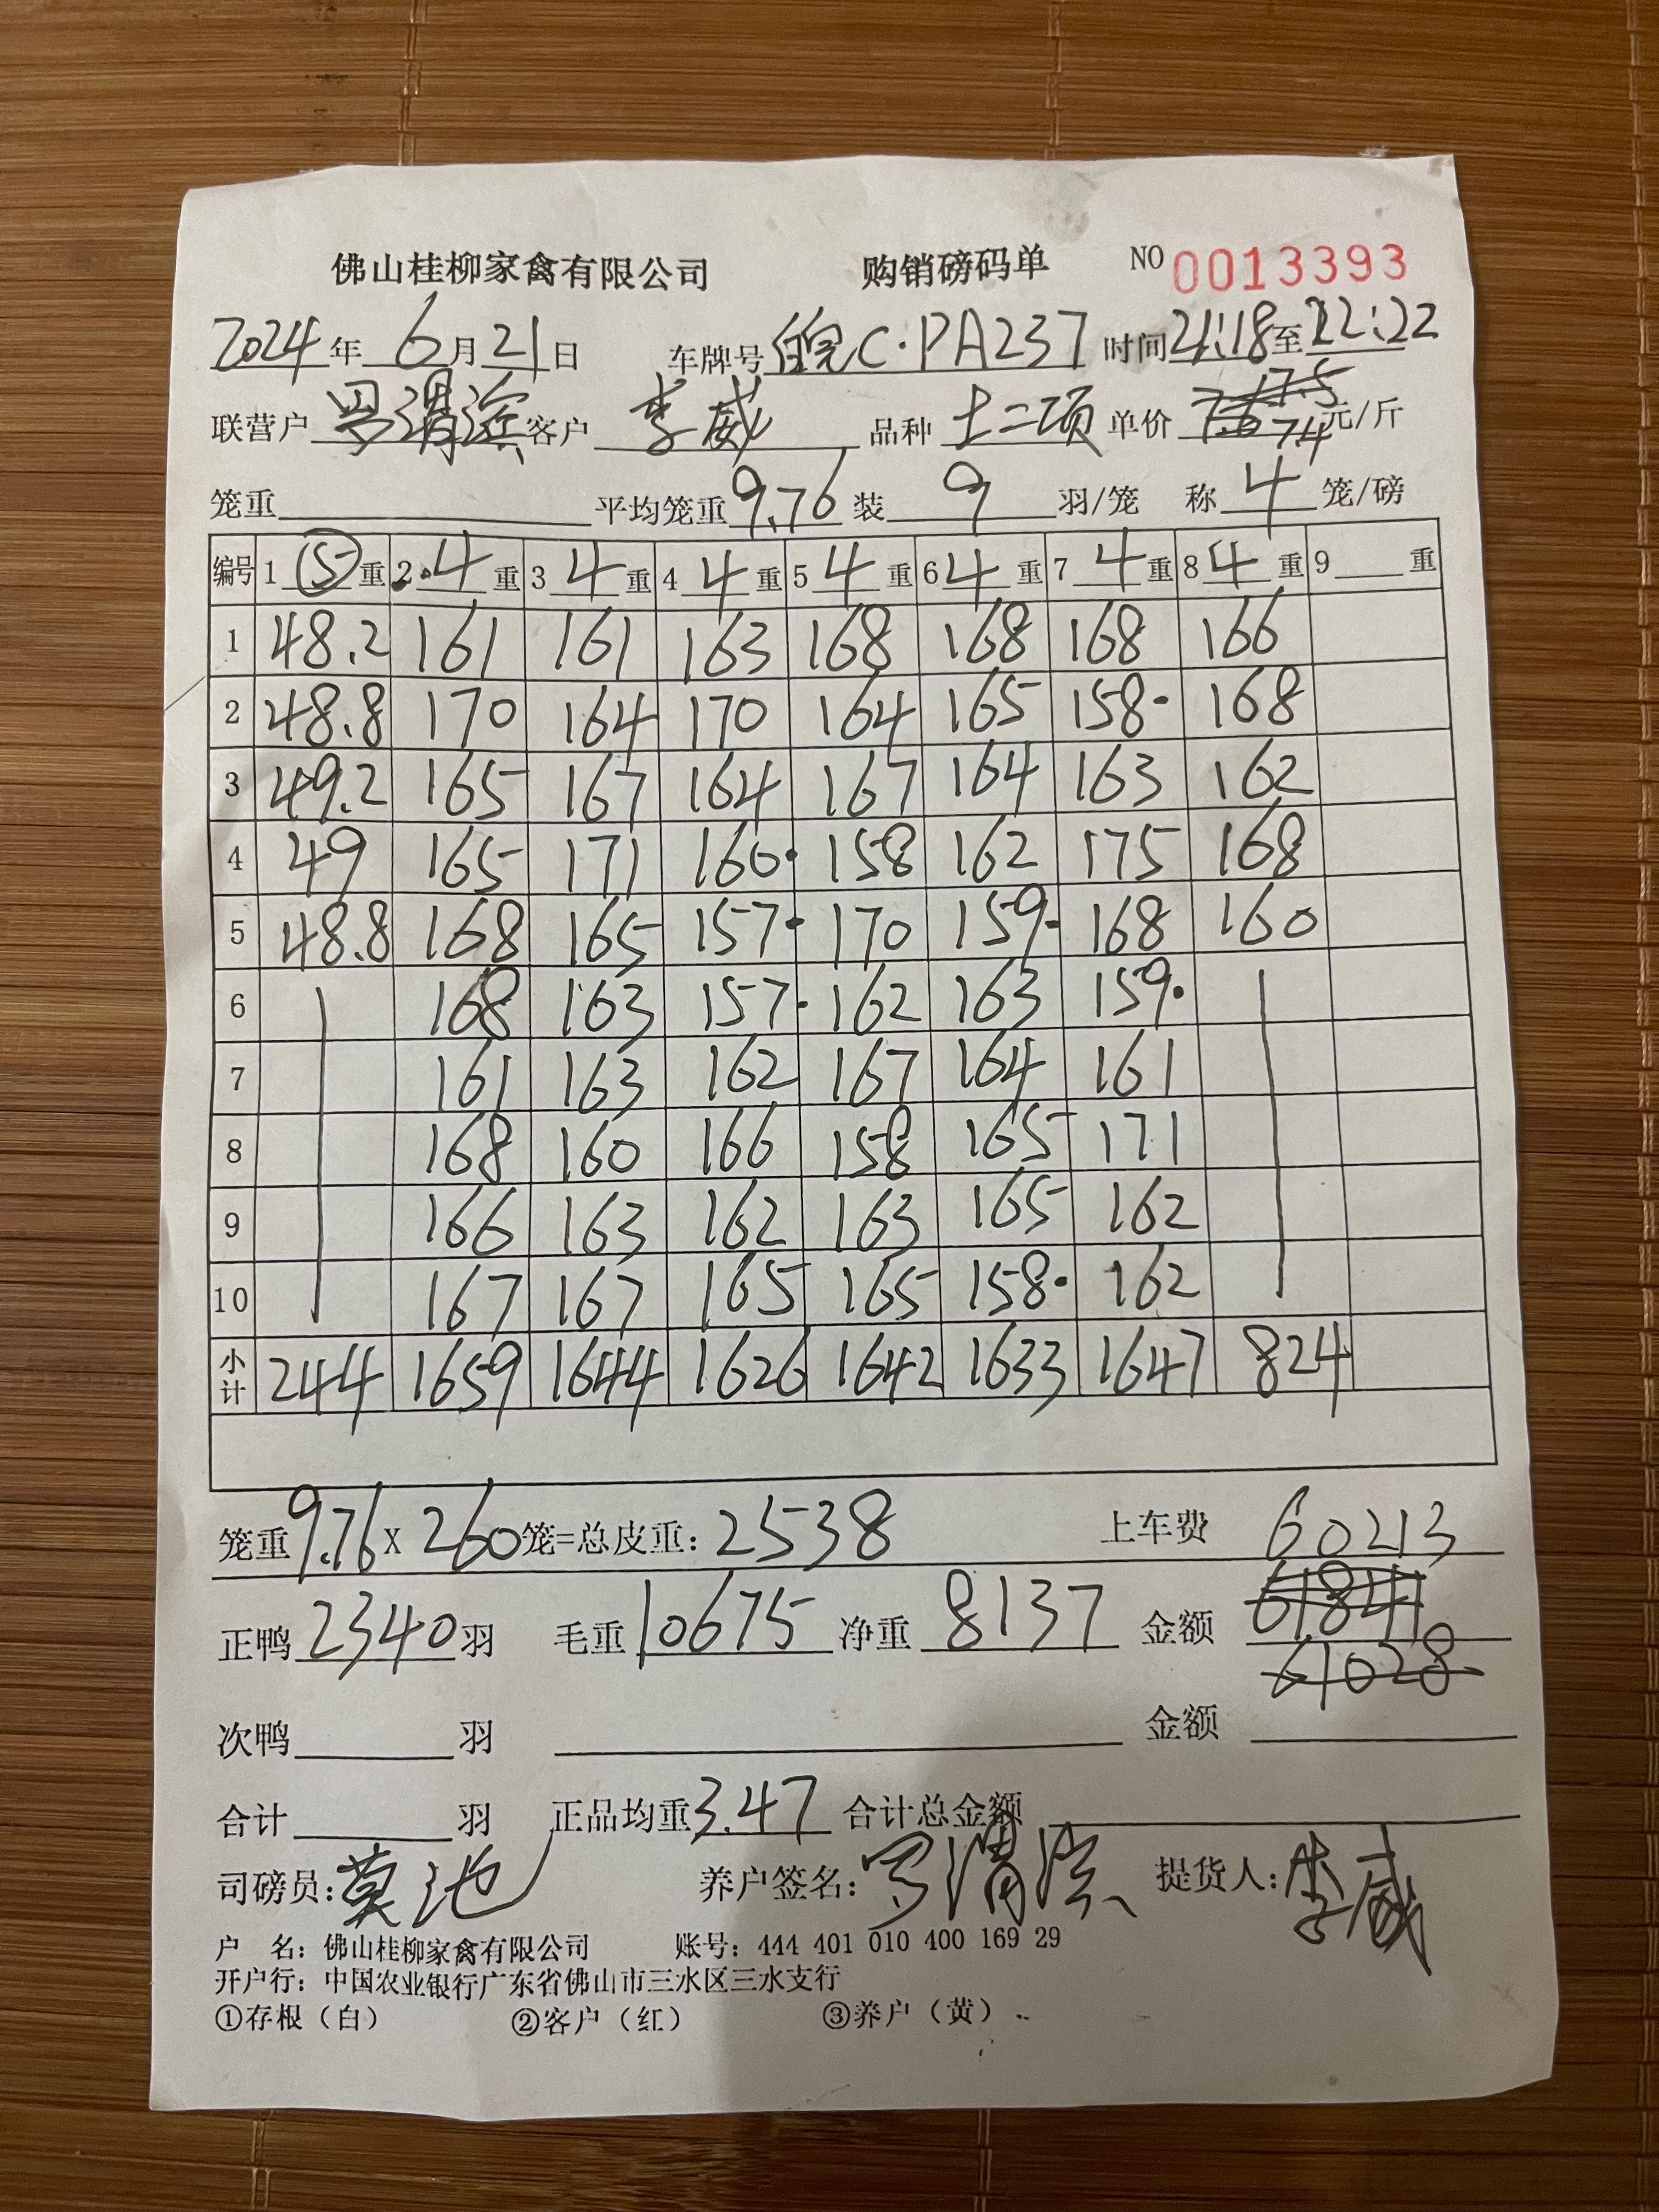 佛山桂柳家禽有限公司 购销磅码单 NO 0013393
2024年 6月21日 车牌号 皖C·PA237 时间 21:18至22:22
联营户 罗渭滨 客户 李威 品种 土二项 单价 7.5 7.4 元/斤
笼重 平均笼重 9.76 装 9 羽/笼 称 4 笼/磅
编号 1 ⑤ 重 2. 4 重 3 4 重 4 4 重 5 4 重 6 4 重 7 4 重 8 4 重 9 重
1 48.2 161 161 163 168 168 168 166
2 48.8 170 164 170 164 165 158· 168
3 49.2 165 167 164 167 164 163 162
4 49 165 171 160· 158 162 175 168
5 48.8 168 165 157· 170 159· 168 160
6 168 163 157· 162 163 159·
7 161 163 162 167 164 161
8 168 160 166 158 165 171
9 166 163 162 163 165 162
10 167 167 165 165 158· 162
小计 244 1659 1644 1626 1642 1633 1647 824
笼重 9.76 X 260 笼=总皮重: 2538 上车费 60213
正鸭 2340 羽 毛重 10675 净重 8137 金额 61841
61028
次鸭 羽 金额
合计 羽 正品均重 3.47 合计总金额
司磅员: 莫池 养户签名: 罗渭滨 提货人: 李威
户 名: 佛山桂柳家禽有限公司 账号: 444 401 010 400 169 29
开户行: 中国农业银行广东省佛山市三水区三水支行
①存根（白） ②客户（红） ③养户（黄）